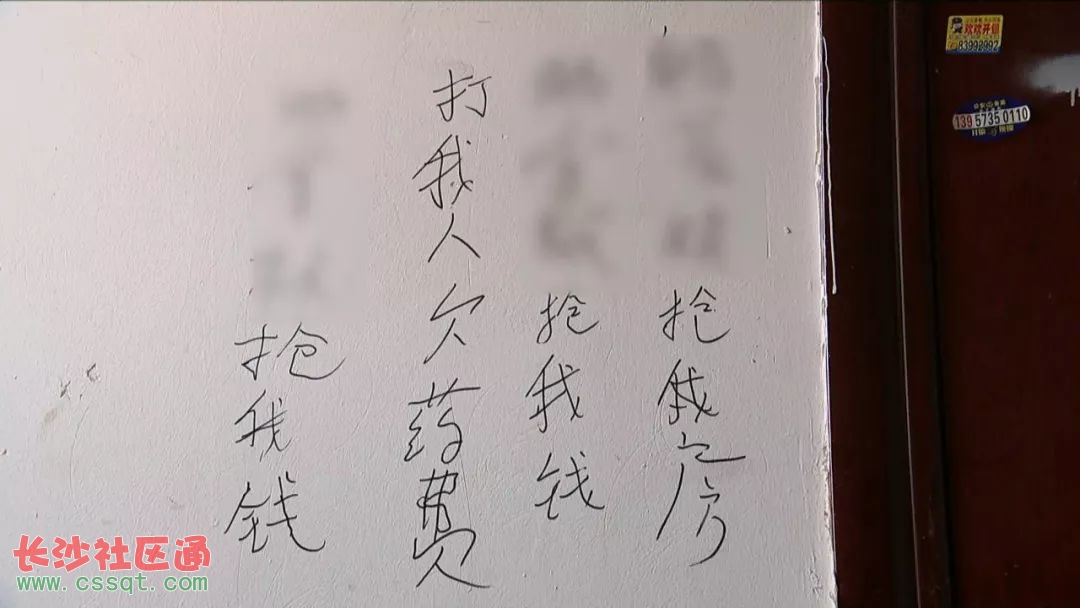 抢我之房
抢我钱
打我人欠药费欠
抢我钱
欢欢开锁
83992992
13957350110
长沙社区通
www.cssqt.com